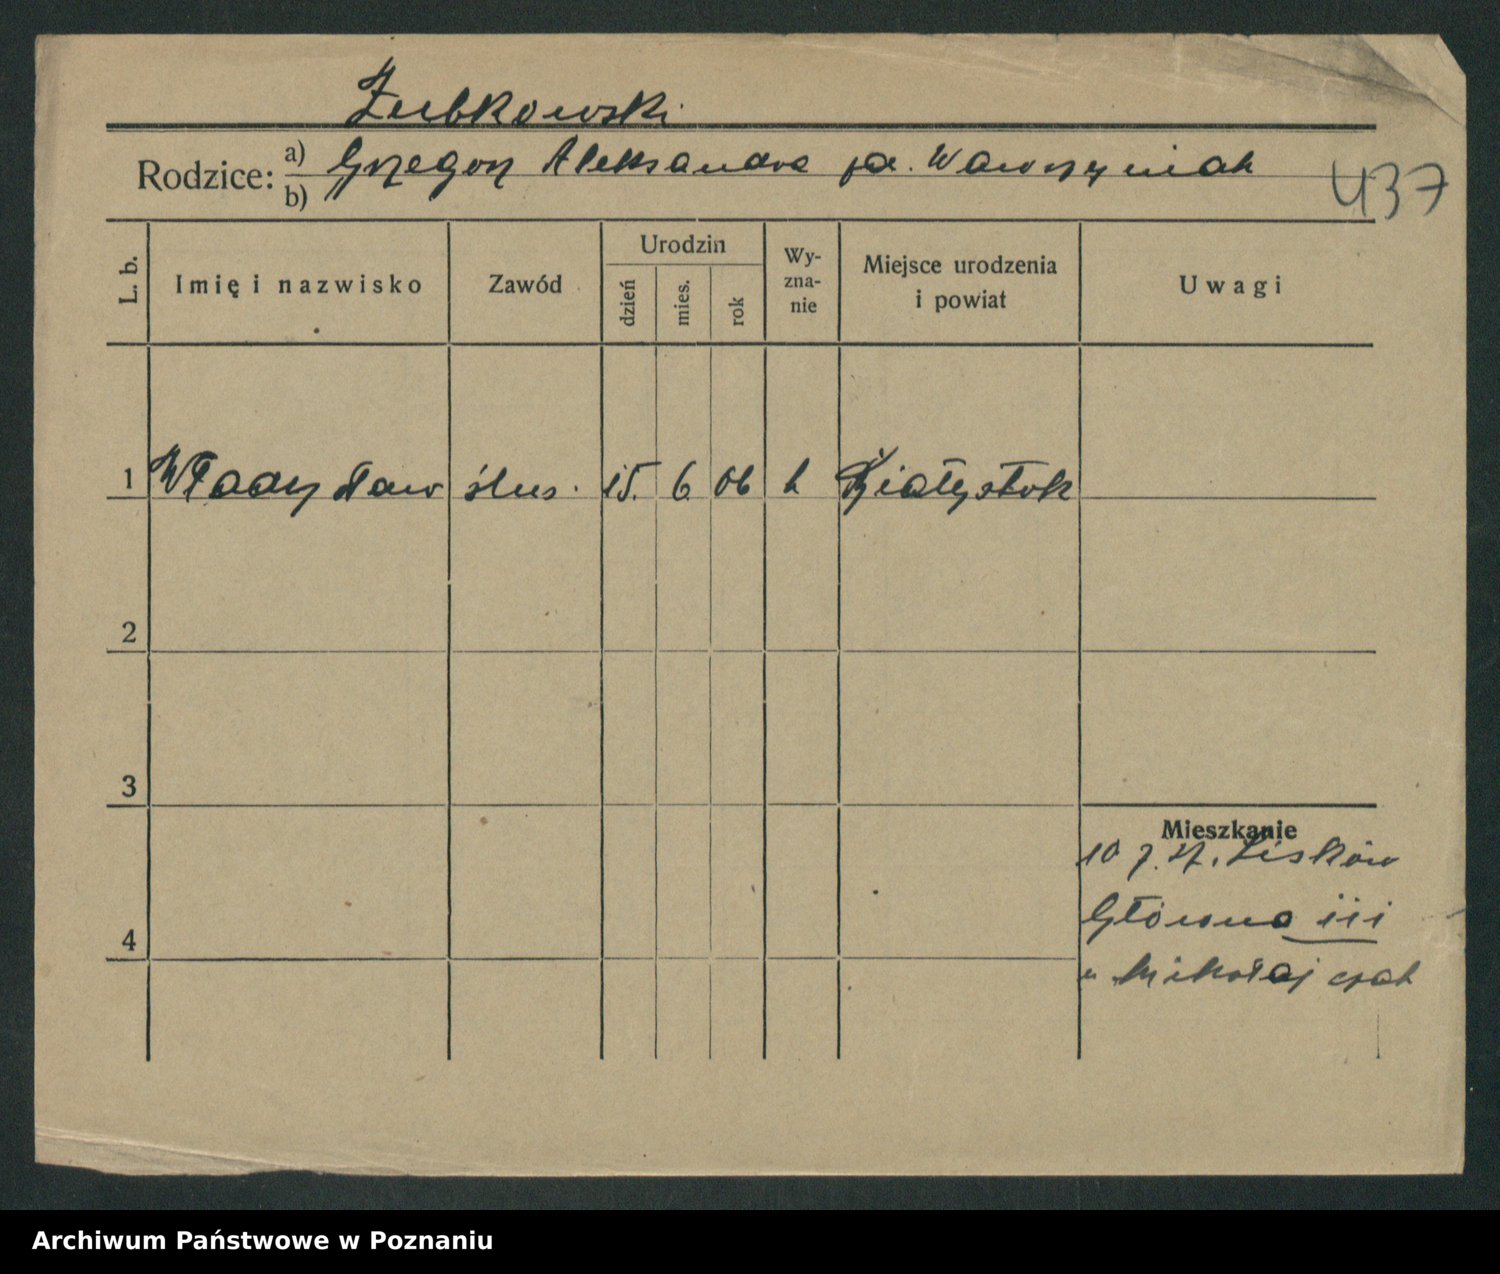 Zubkowski
Rodzice: a) Grzegorz Aleksandra pa. Wawrzyniak
b)
437
L. b.
Imię i nazwisko
Zawód
Urodzin
dzień
mies.
rok
Wy-
zna-
nie
Miejsce urodzenia
i powiat
Uwagi
1 Władysław ślus. 15. 6 06 k Białystok
2
3
4
Mieszkanie
10 7. Lisków
Główna iii
u Mikołajczak
Archiwum Państwowe w Poznaniu